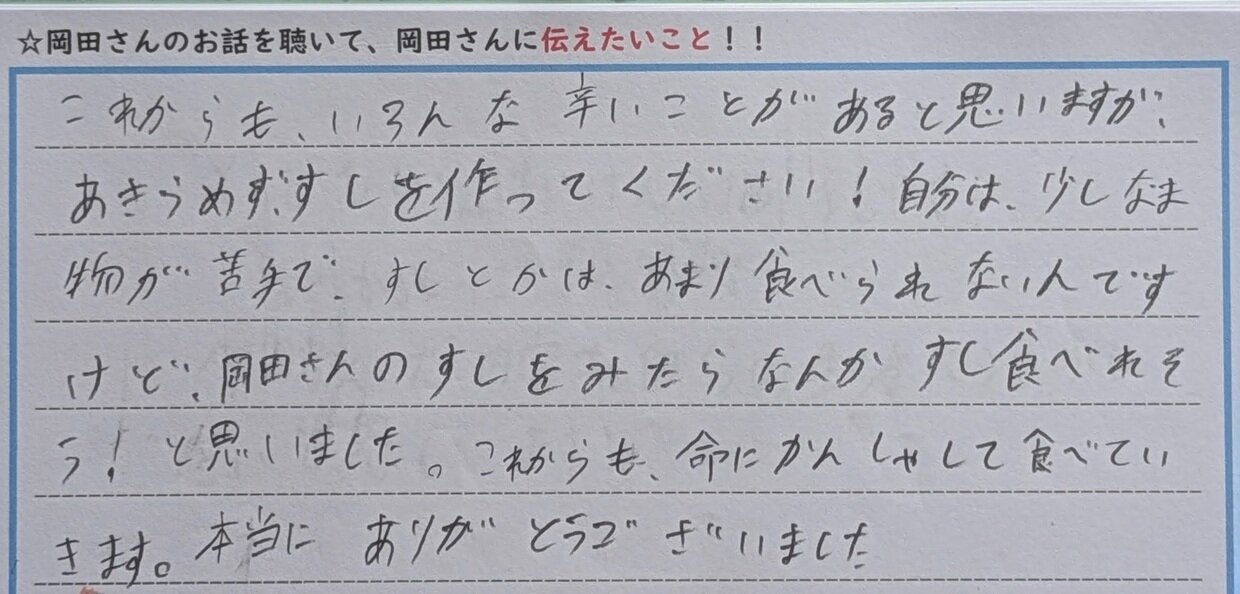 ☆岡田さんのお話を聴いて、岡田さんに伝えたいこと！！
これからも、いろんな辛いことがあると思いますが、
あきらめず、すしを作ってください！自分は、少しなま
物が苦手で、すしとかは、あまり食べられないんです
けど、岡田さんのすしをみたらなんかすし食べれそ
う！と思いました。これからも、命にかんしゃして食べてい
きます。本当にありがとうございました